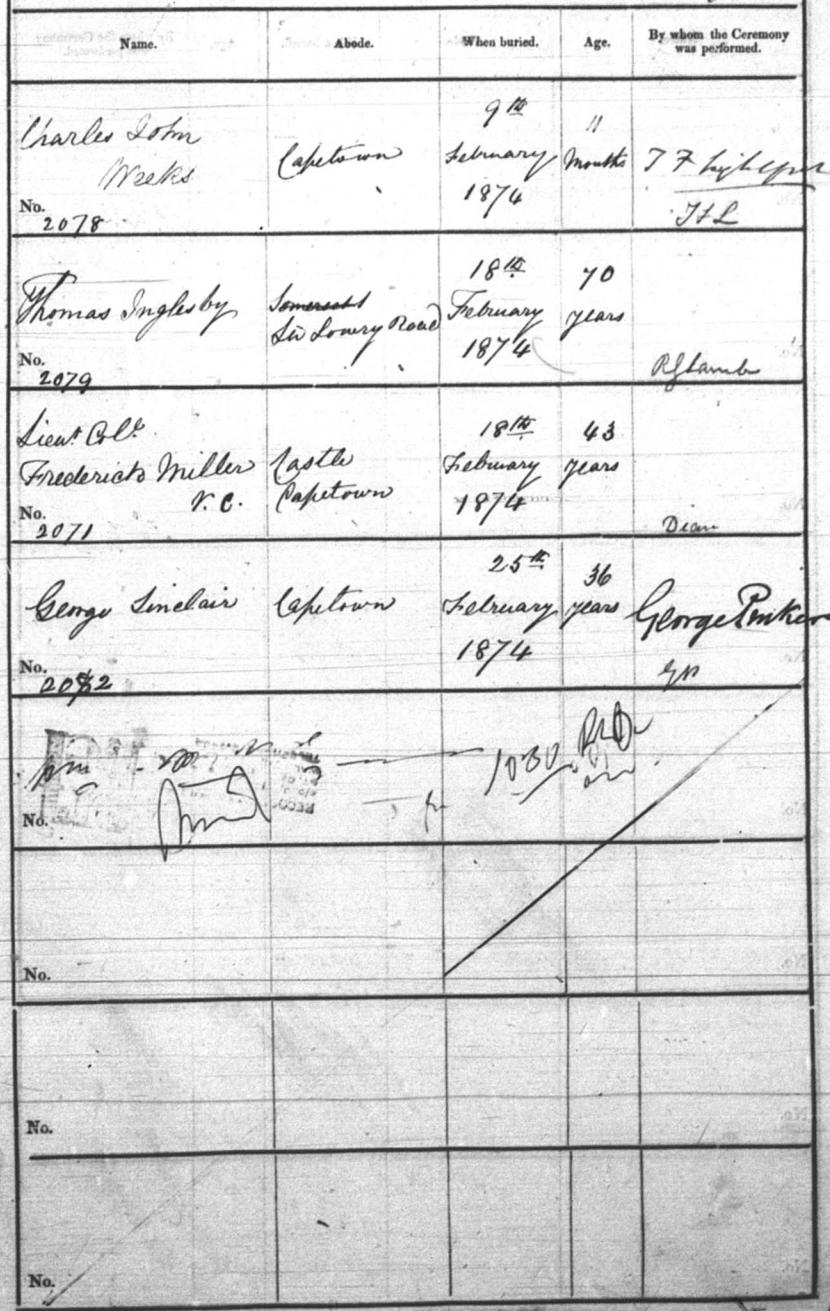 Name. Abode. When buried. Age. By whom the Ceremony was performed.
Charles John
Weeks
Capetown
9th
February
1874
11
Months
T F
TFL
No. 2078
Thomas Inglesby
Somerset
Sir Lowry Road
18th
February
1874
70
years
RGLamb
No. 2079
Lieut Coll.
Frederick Miller
V. C.
Castle
Capetown
18th
February
1874
43
years
Dean
No. 2071
George Sinclair
Capetown
25th
February
1874
36
years
George
No. 2082
1030
No.
No.
No.
No.